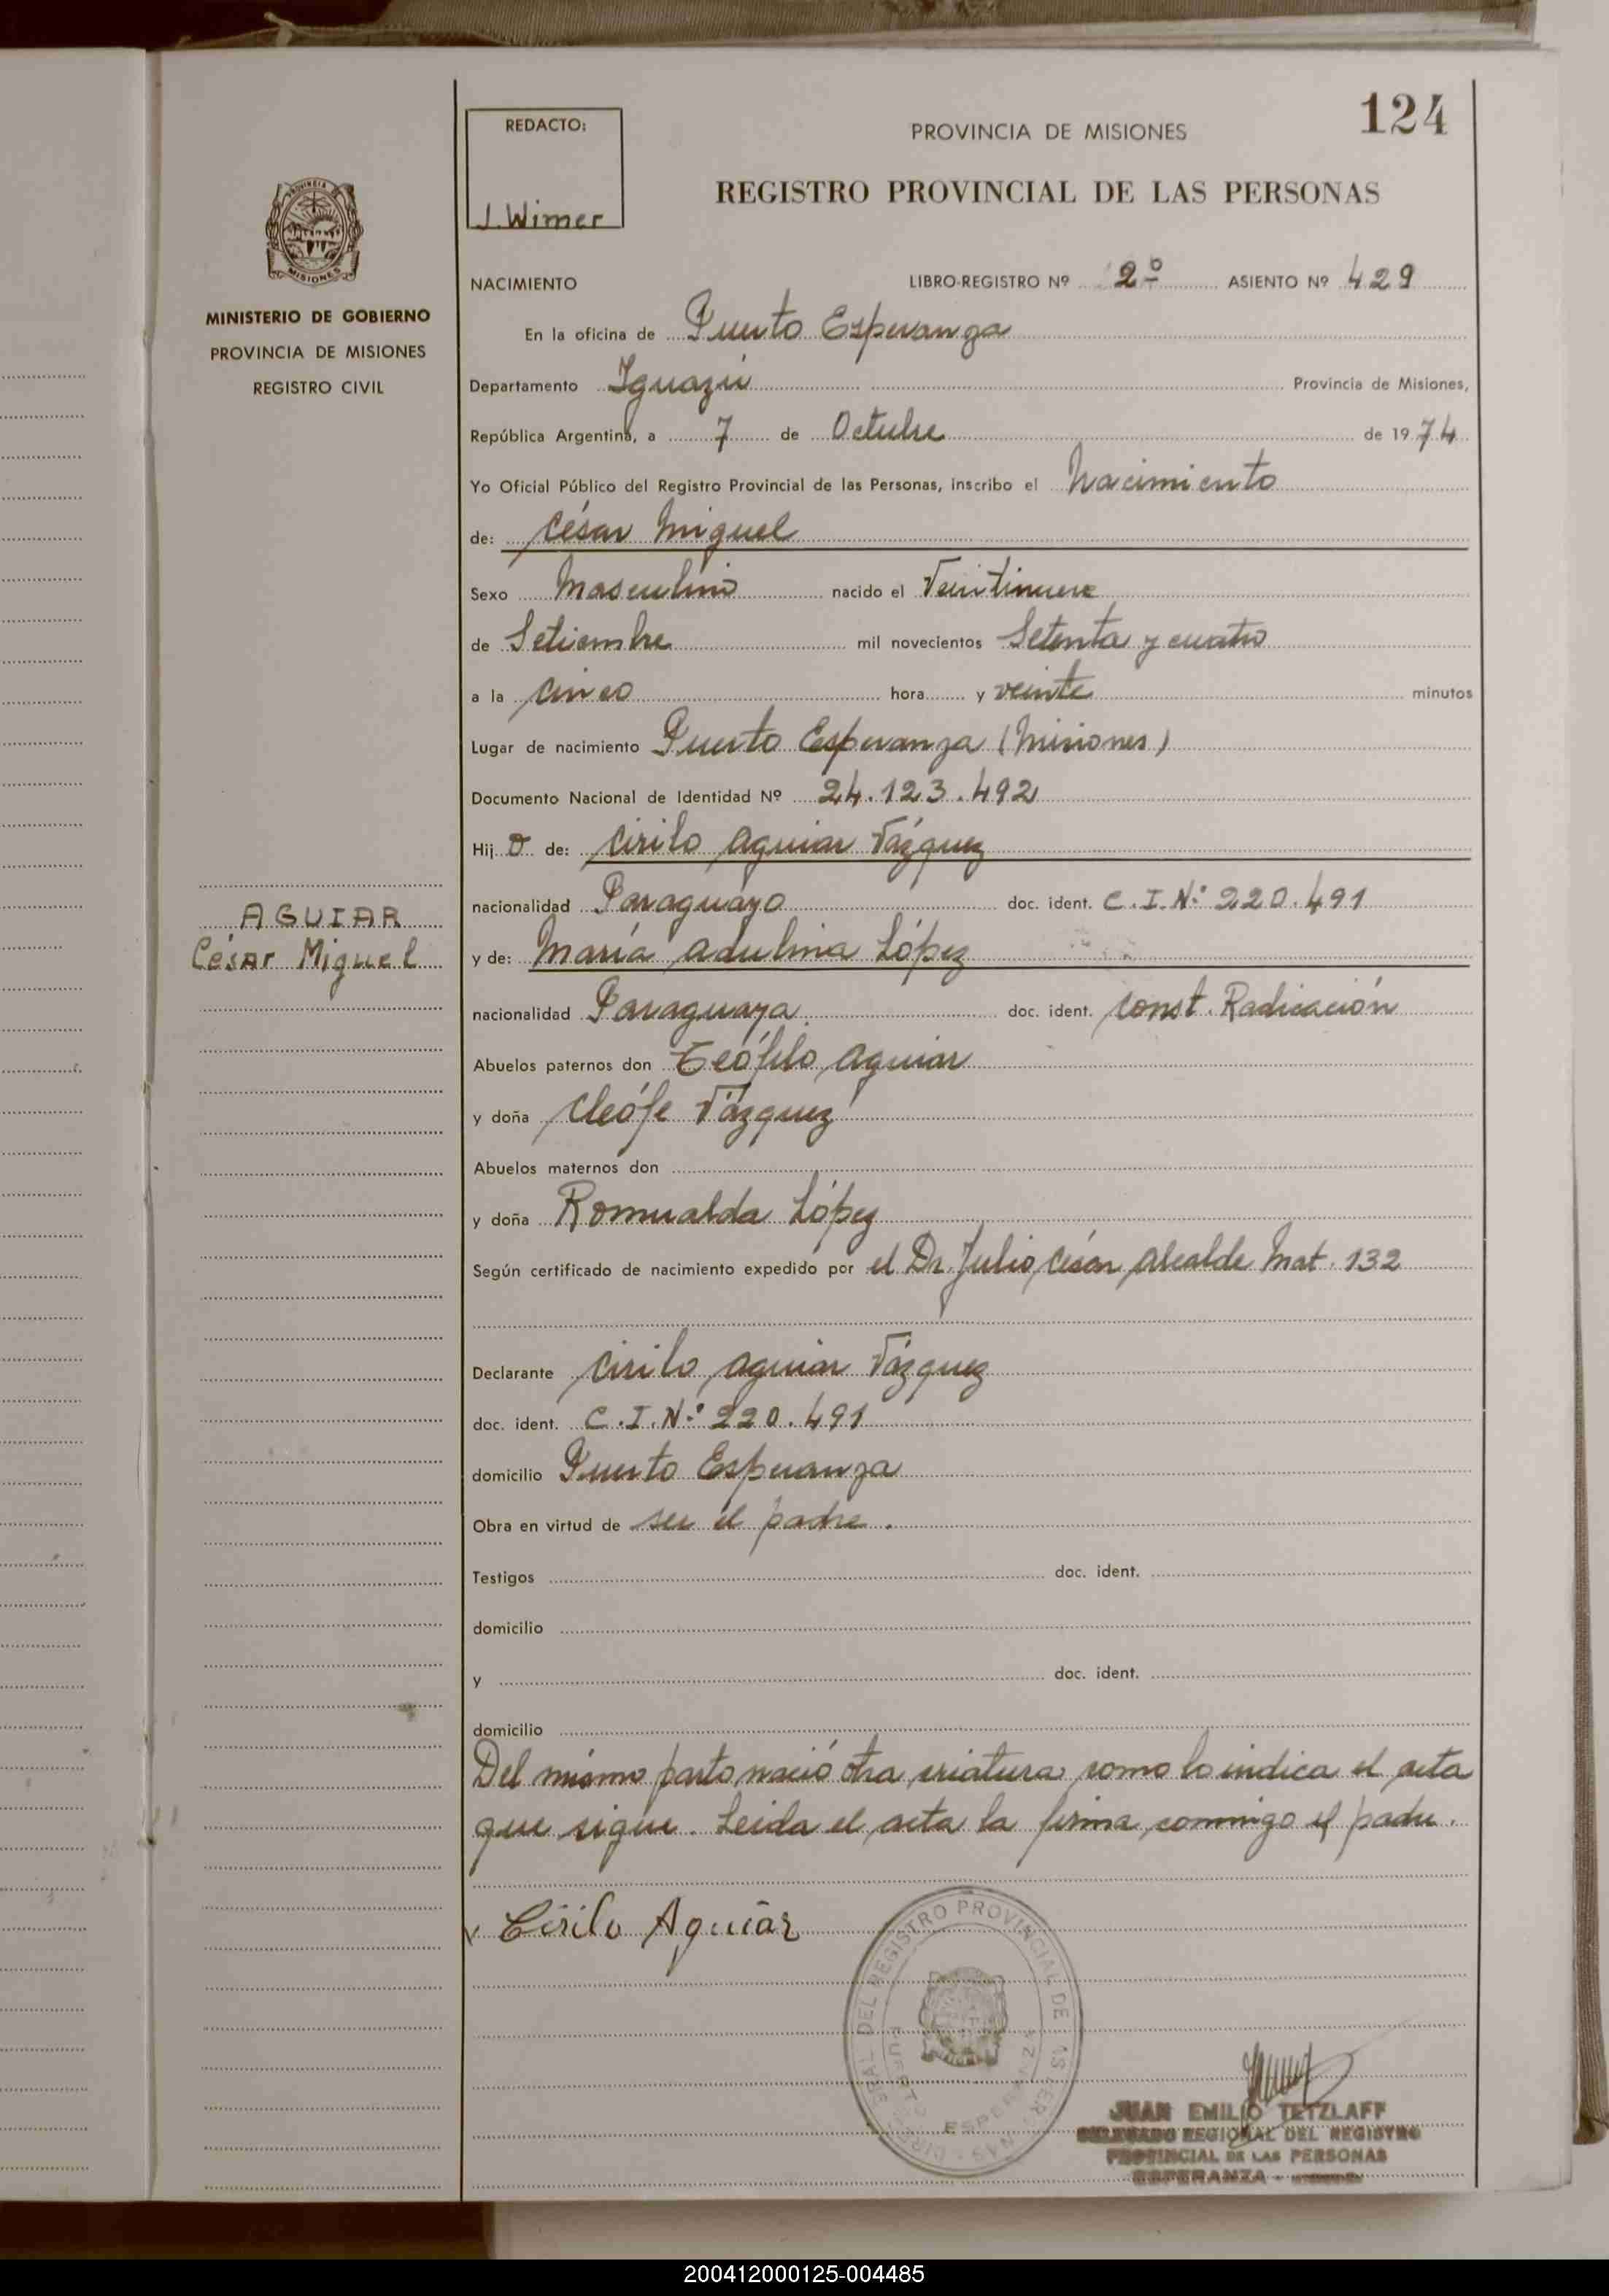 124
REDACTO:
J. Wimer
PROVINCIA DE MISIONES
REGISTRO PROVINCIAL DE LAS PERSONAS
PROVINCIA DE
MISIONES
MINISTERIO DE GOBIERNO
PROVINCIA DE MISIONES
REGISTRO CIVIL
NACIMIENTO LIBRO-REGISTRO Nº 2º ASIENTO Nº 429
En la oficina de Puerto Esperanza
Departamento Iguazú Provincia de Misiones,
República Argentina, a 7 de Octubre de 1974
Yo Oficial Público del Registro Provincial de las Personas, inscribo el Nacimiento
de: César Miguel
Sexo Masculino nacido el Veintinueve
de Setiembre mil novecientos Setenta y cuatro
a la cinco hora y veinte minutos
Lugar de nacimiento Puerto Esperanza (Misiones)
Documento Nacional de Identidad Nº 24.123.492
Hij o de: Cirilo Aguiar Vázquez
nacionalidad Paraguayo doc. ident. C.I.N:º 220.491
AGUIAR
César Miguel
y de: María Adulina López
nacionalidad Paraguaya. doc. ident. Const. Radicación
Abuelos paternos don Teófilo Aguiar
y doña Cleófe Vázquez
Abuelos maternos don
y doña Romualda López
Según certificado de nacimiento expedido por el Dr. Julio César Alcalde Mat. 132
Declarante Cirilo Aguiar Vázquez
doc. ident. C.I.N:º 220.491
domicilio Puerto Esperanza
Obra en virtud de ser el padre.
Testigos doc. ident.
domicilio
y doc. ident.
domicilio
Del mismo parto nació otra criatura como lo indica el acta
que sigue. Leida el acta la firma conmigo el padre.
Cirilo Aguiar
DEL REGISTRO PROVINCIAL DE
ESPERANZA
JUAN EMILIO TETZLAFF
DELEGADO REGIONAL DEL REGISTRO
PROVINCIAL DE LAS PERSONAS
ESPERANZA -
200412000125-004485